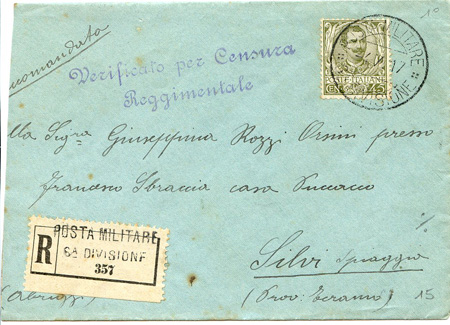 Raccomandata
Verificato per Censura
Reggimentale
POSTE ITALIANE
CENT. 45
POSTA MILITARE
DIVISIONE
Alla Sigra Giuseppina Rozzi Orsini presso
Francesco Sbraccia casa
R
POSTA MILITARE
6a DIVISIONE
357
Silvi Spiaggia
(Abruzzi)
(Prov: Teramo)
15